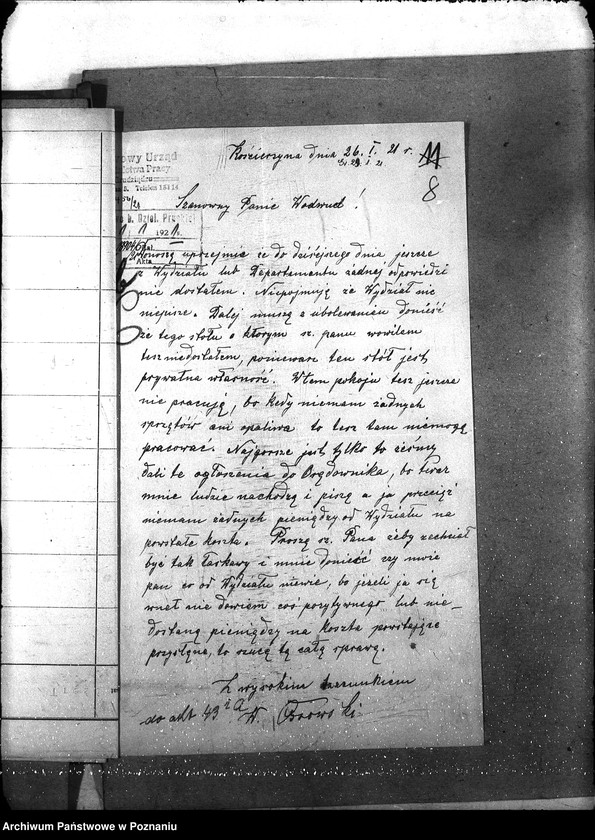 Kościerzyna dnia 26. I. 21 r. 11
8
owy Urząd
Telefon
Szanowny Panie Wodwud !
b. Dzial. Pruskiej
1921
Akta
Donoszę uprzejmie że do dzisiejszego dnia jeszcze
z Wydziału lub Departamentu żadnej odpowiedzi
nie dostałem. Niepojmuję że Wydział nie
niepisze. Dalej muszę z ubolewaniem donieść
że tego stołu o którym sz. panu mowilem
tesz niedostałem, poniewarz ten stół jest
prywatna własność. Wtem pokoju tesz jeszcze
nie pracuję, bo kedy niemam żadnych
sprzętów ani opaliwa to tesz tam niemogę
pracować. Najgorsze jest tylko to żeśmy
dali te ogłoszenia do Orędownika, bo teraz
mnie ludzie nachodzą i piszą a ja przecięż
niemam żadnych pieniędzy od Wydziału na
powstałe koszta. Proszę sz. Pana żeby zechciał
być tak łaskawy i mnie donieść czy mnie
pan co od Wydziału niewie, bo jezeli ja się
wnet nie dowiem coś pozytywnego lub nie-
dostanę pieniędzy na koszta powstające
przystąpię, to rzucę tę całą sprawę.
Z wysokim szacunkiem
do akt 43 W. Ossowski
Archiwum Państwowe w Poznaniu